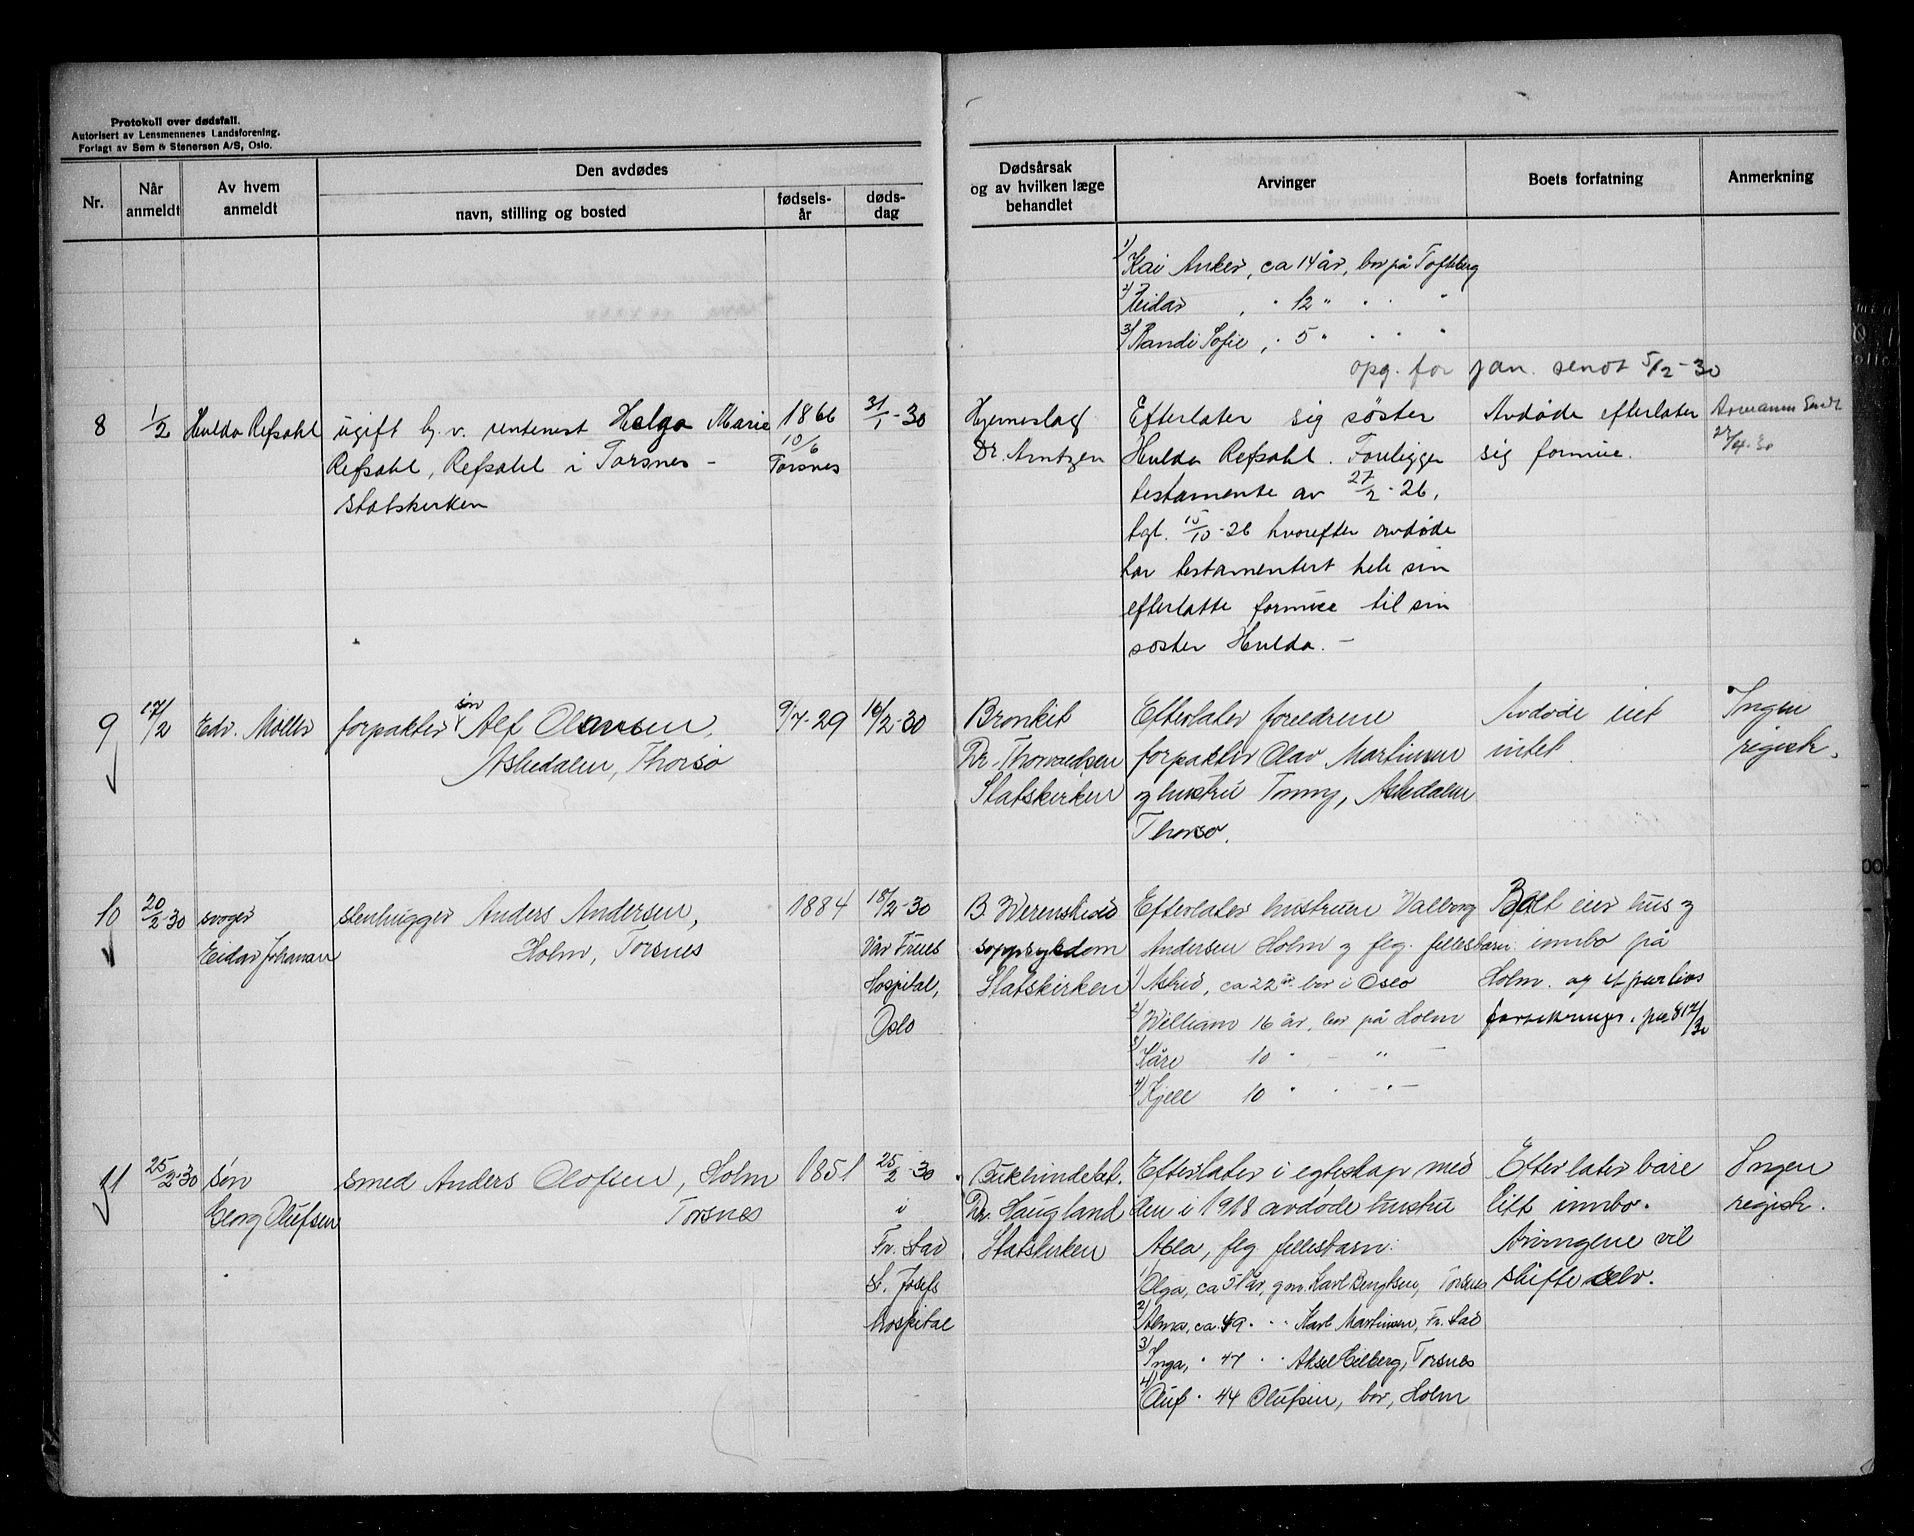 Protokoll over dødsfall.
Autorisert av Lensmennenes Landsforening.
Forlagt av Sem & Stenersen A/S, Oslo.
Nr.
Når
anmeldt
Av hvem
anmeldt
Den avdødes
navn, stilling og bosted
fødsels-
år
døds-
dag
Dødsårsak
og av hvilken læge
behandlet
Arvinger
Boets forfatning
Anmerkning
1/ Kai Anker, ca 14 år, bor på Tofteberg
2/ Reidar , " 12 " " " "
3/ Randi Sofie , " 5 " " " "
opg. for jan. sendt 5/2-30
8
1/2
Hulda Refsahl
ugift hj. v. rentenist Helga Marie
Refsahl, Refsahl i Torsnes -
statskirken
1866
10/6
Torsnes
31/1-30
Hjerneslag
Dr. Arntzen
Efterlater sig søster
Hulda Refsahl. Foreligger
testamente av 27/2-26,
tgl. 15/10-26 hvorefter avdøde
har testamentert hele sin
efterlatte formue til sin
søster Hulda. -
Avdøde efterlater
sig formue.
27/4-30
9
17/2
Edv. Møller
forpakter søn Alf Olavsen,
Askedalen, Thorsø
9/7-29
16/2-30
Bronkit
Dr. Thorvaldsen
Statskirken
Efterlater foreldrene
forpakter Olav Martinsen
og hustru Tonny, Askedalen
Thorsø.
Avdøde eiet
intet.
Ingen
registr.
10
20/2-30
svoger
Eidar Johansen
stenhugger Anders Andersen,
Holm, Torsnes
1884
18/2-30
Vår Frues
Hospital,
Oslo
B. Werenskiold
soppsykdom
Statskirken
Efterlater hustruen Valborg
Andersen Holm og flg. fellesbarn:
1/ Astrid, ca 22 år bor i Oslo
2/ William 16 år, bor på Holm
3/ Kåre 10 " - " -
4/ Kjell 10 " - " -
Boet eier hus og
innbo på
Holm. og et par livs
forsikringer.
11
25/2-30
søn
Georg Olufsen
smed Anders Olofsen, Holm
Torsnes
1851
25/2-30
i
Fr.stad
St. Josefs
hospital
Bukhindebet.
Dr. Haugland
Statskirken
Efterlater i egteskap med
den i 1918 avdøde hustru
Abla, flg. fellesbarn:
1/ Olga, ca 51 år, gm. Karl Bengtsen, Torsnes
2/ Alma, ca. 49 " " Karl Martinsen, Fr.stad
3/ Inga, " 47 " " Aksel Eilberg, Torsnes
4/ Oluf " 44 Olufsen, bor, Holm
Efterlater bare
litt innbo.
Arvingene vil
skifte selv.
Ingen
registr.